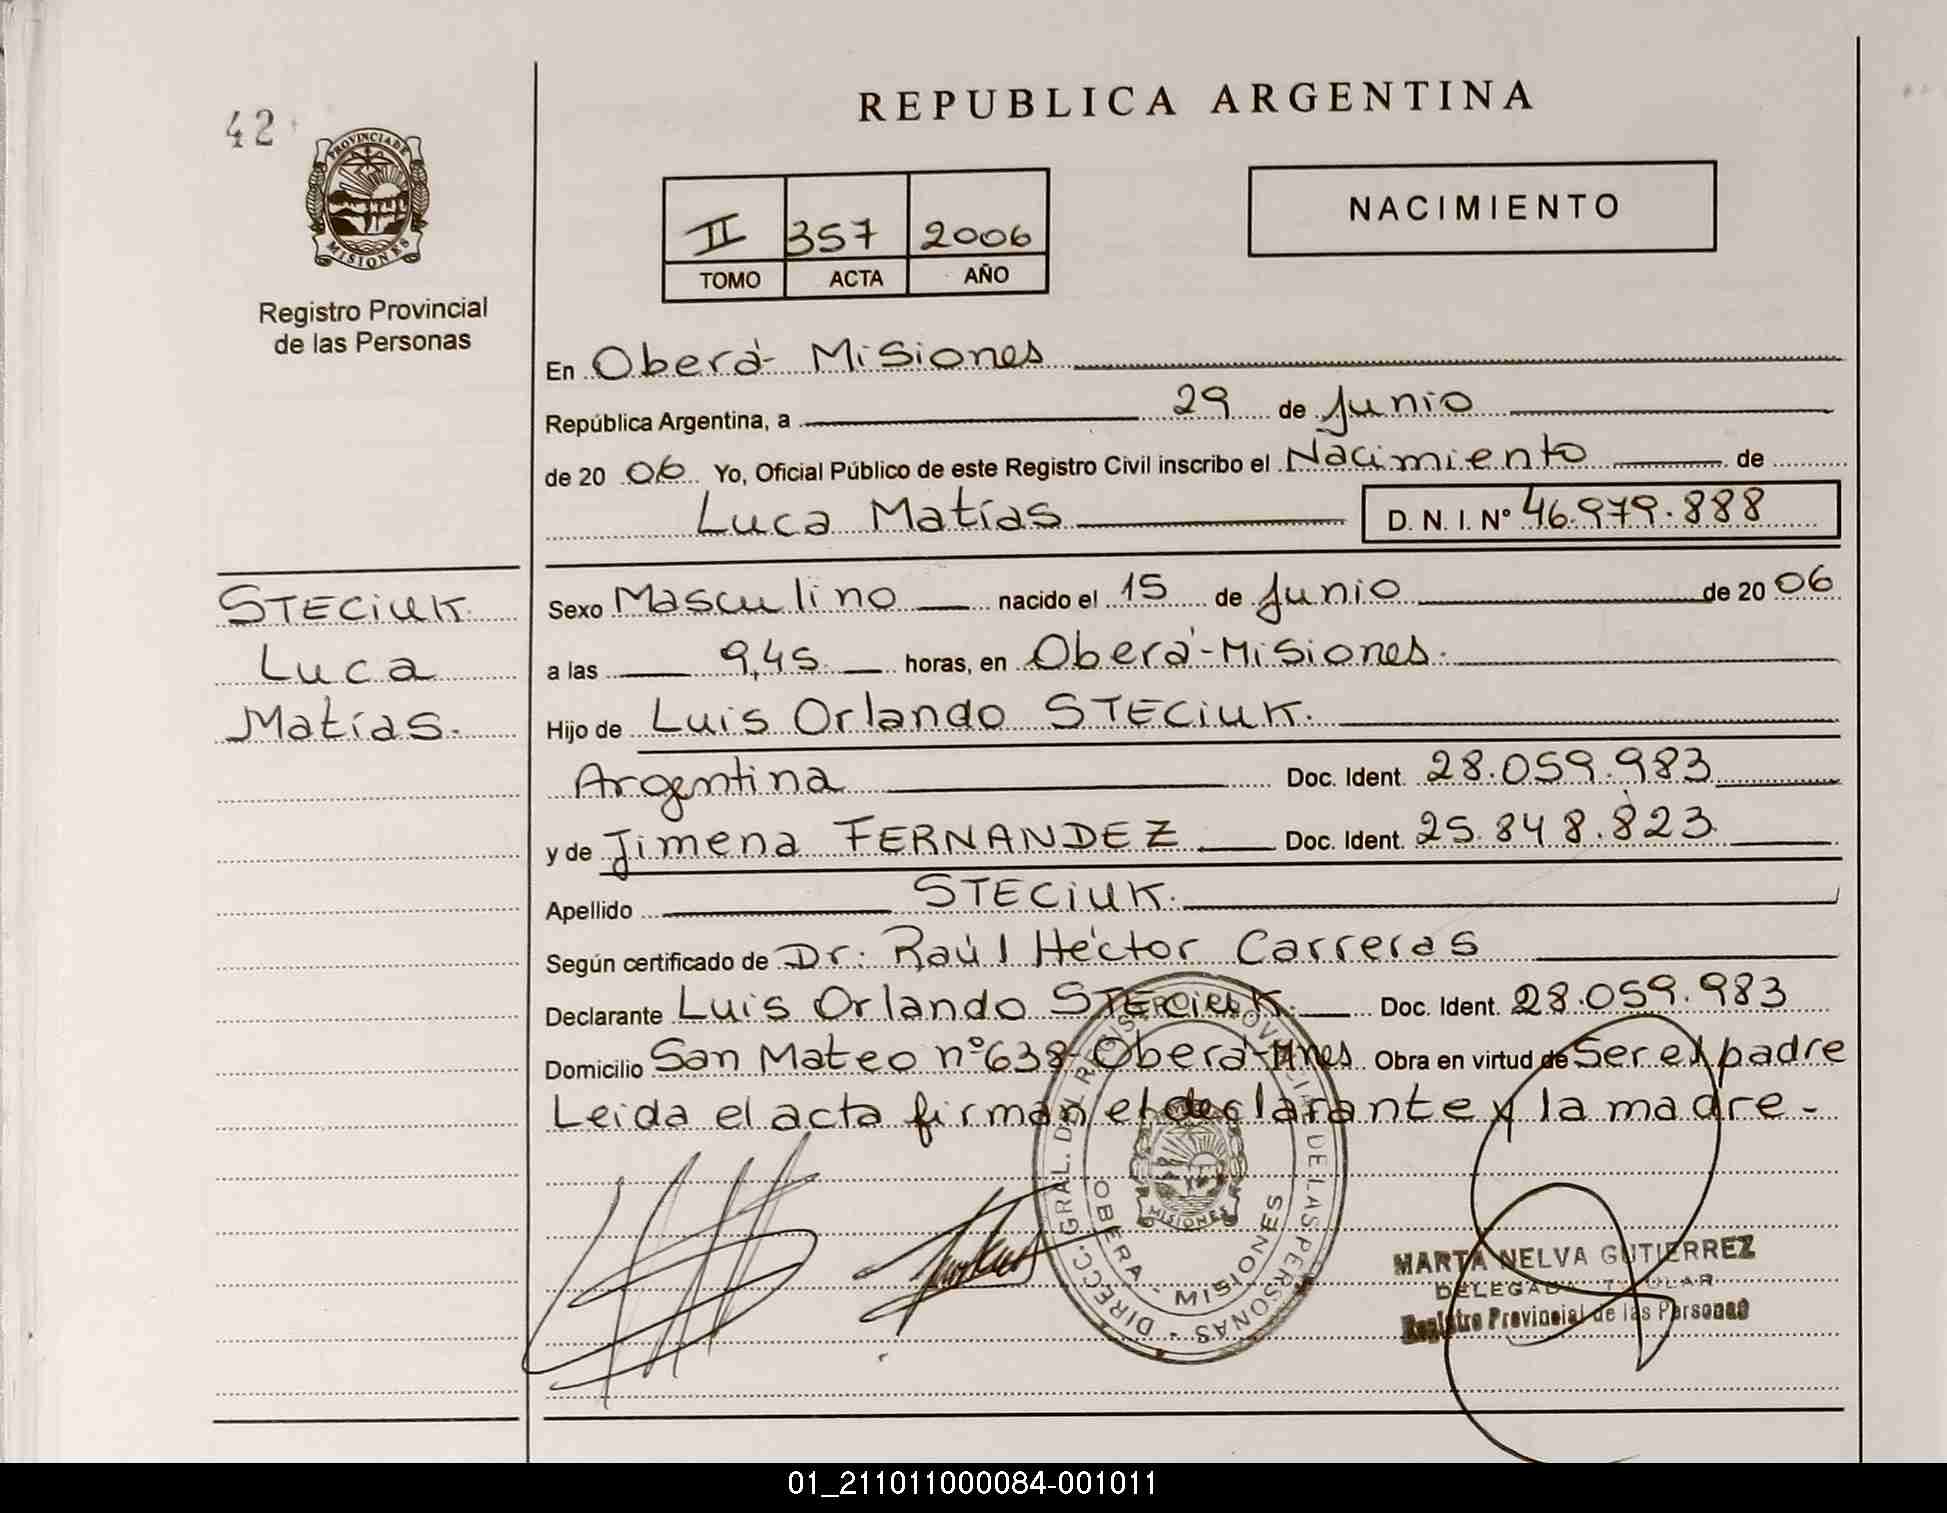 42
PROVINCIA DE
MISIONES
Registro Provincial
de las Personas
REPUBLICA ARGENTINA
II 357 2006
TOMO ACTA AÑO
NACIMIENTO
En Oberá- Misiones
República Argentina, a 29 de Junio
de 20 06 Yo, Oficial Público de este Registro Civil inscribo el Nacimiento de
Luca Matías D. N. I. Nº 46.979.888
STECIUK
Luca
Matías.
Sexo Masculino nacido el 15 de Junio de 20 06
a las 9,45 horas, en Oberá-Misiones.
Hijo de Luis Orlando STECIUK.
Argentina Doc. Ident. 28.059.983
y de Jimena FERNANDEZ Doc. Ident. 25.848.823
Apellido STECIUK.
Según certificado de Dr. Raúl Héctor Carreras
Declarante Luis Orlando STECIUK. Doc. Ident. 28.059.983
Domicilio San Mateo nº638-Oberá-Mnes Obra en virtud de Ser el padre
Leida el acta firman el declarante y la madre-
DIRECC. GRAL. DEL REGISTRO PROVINCIAL DE LAS PERSONAS
MISIONES
OBERA - MISIONES
MARTA NELVA GUTIERREZ
DELEGADA TITULAR
Registro Provincial de las Personas
01_211011000084-001011